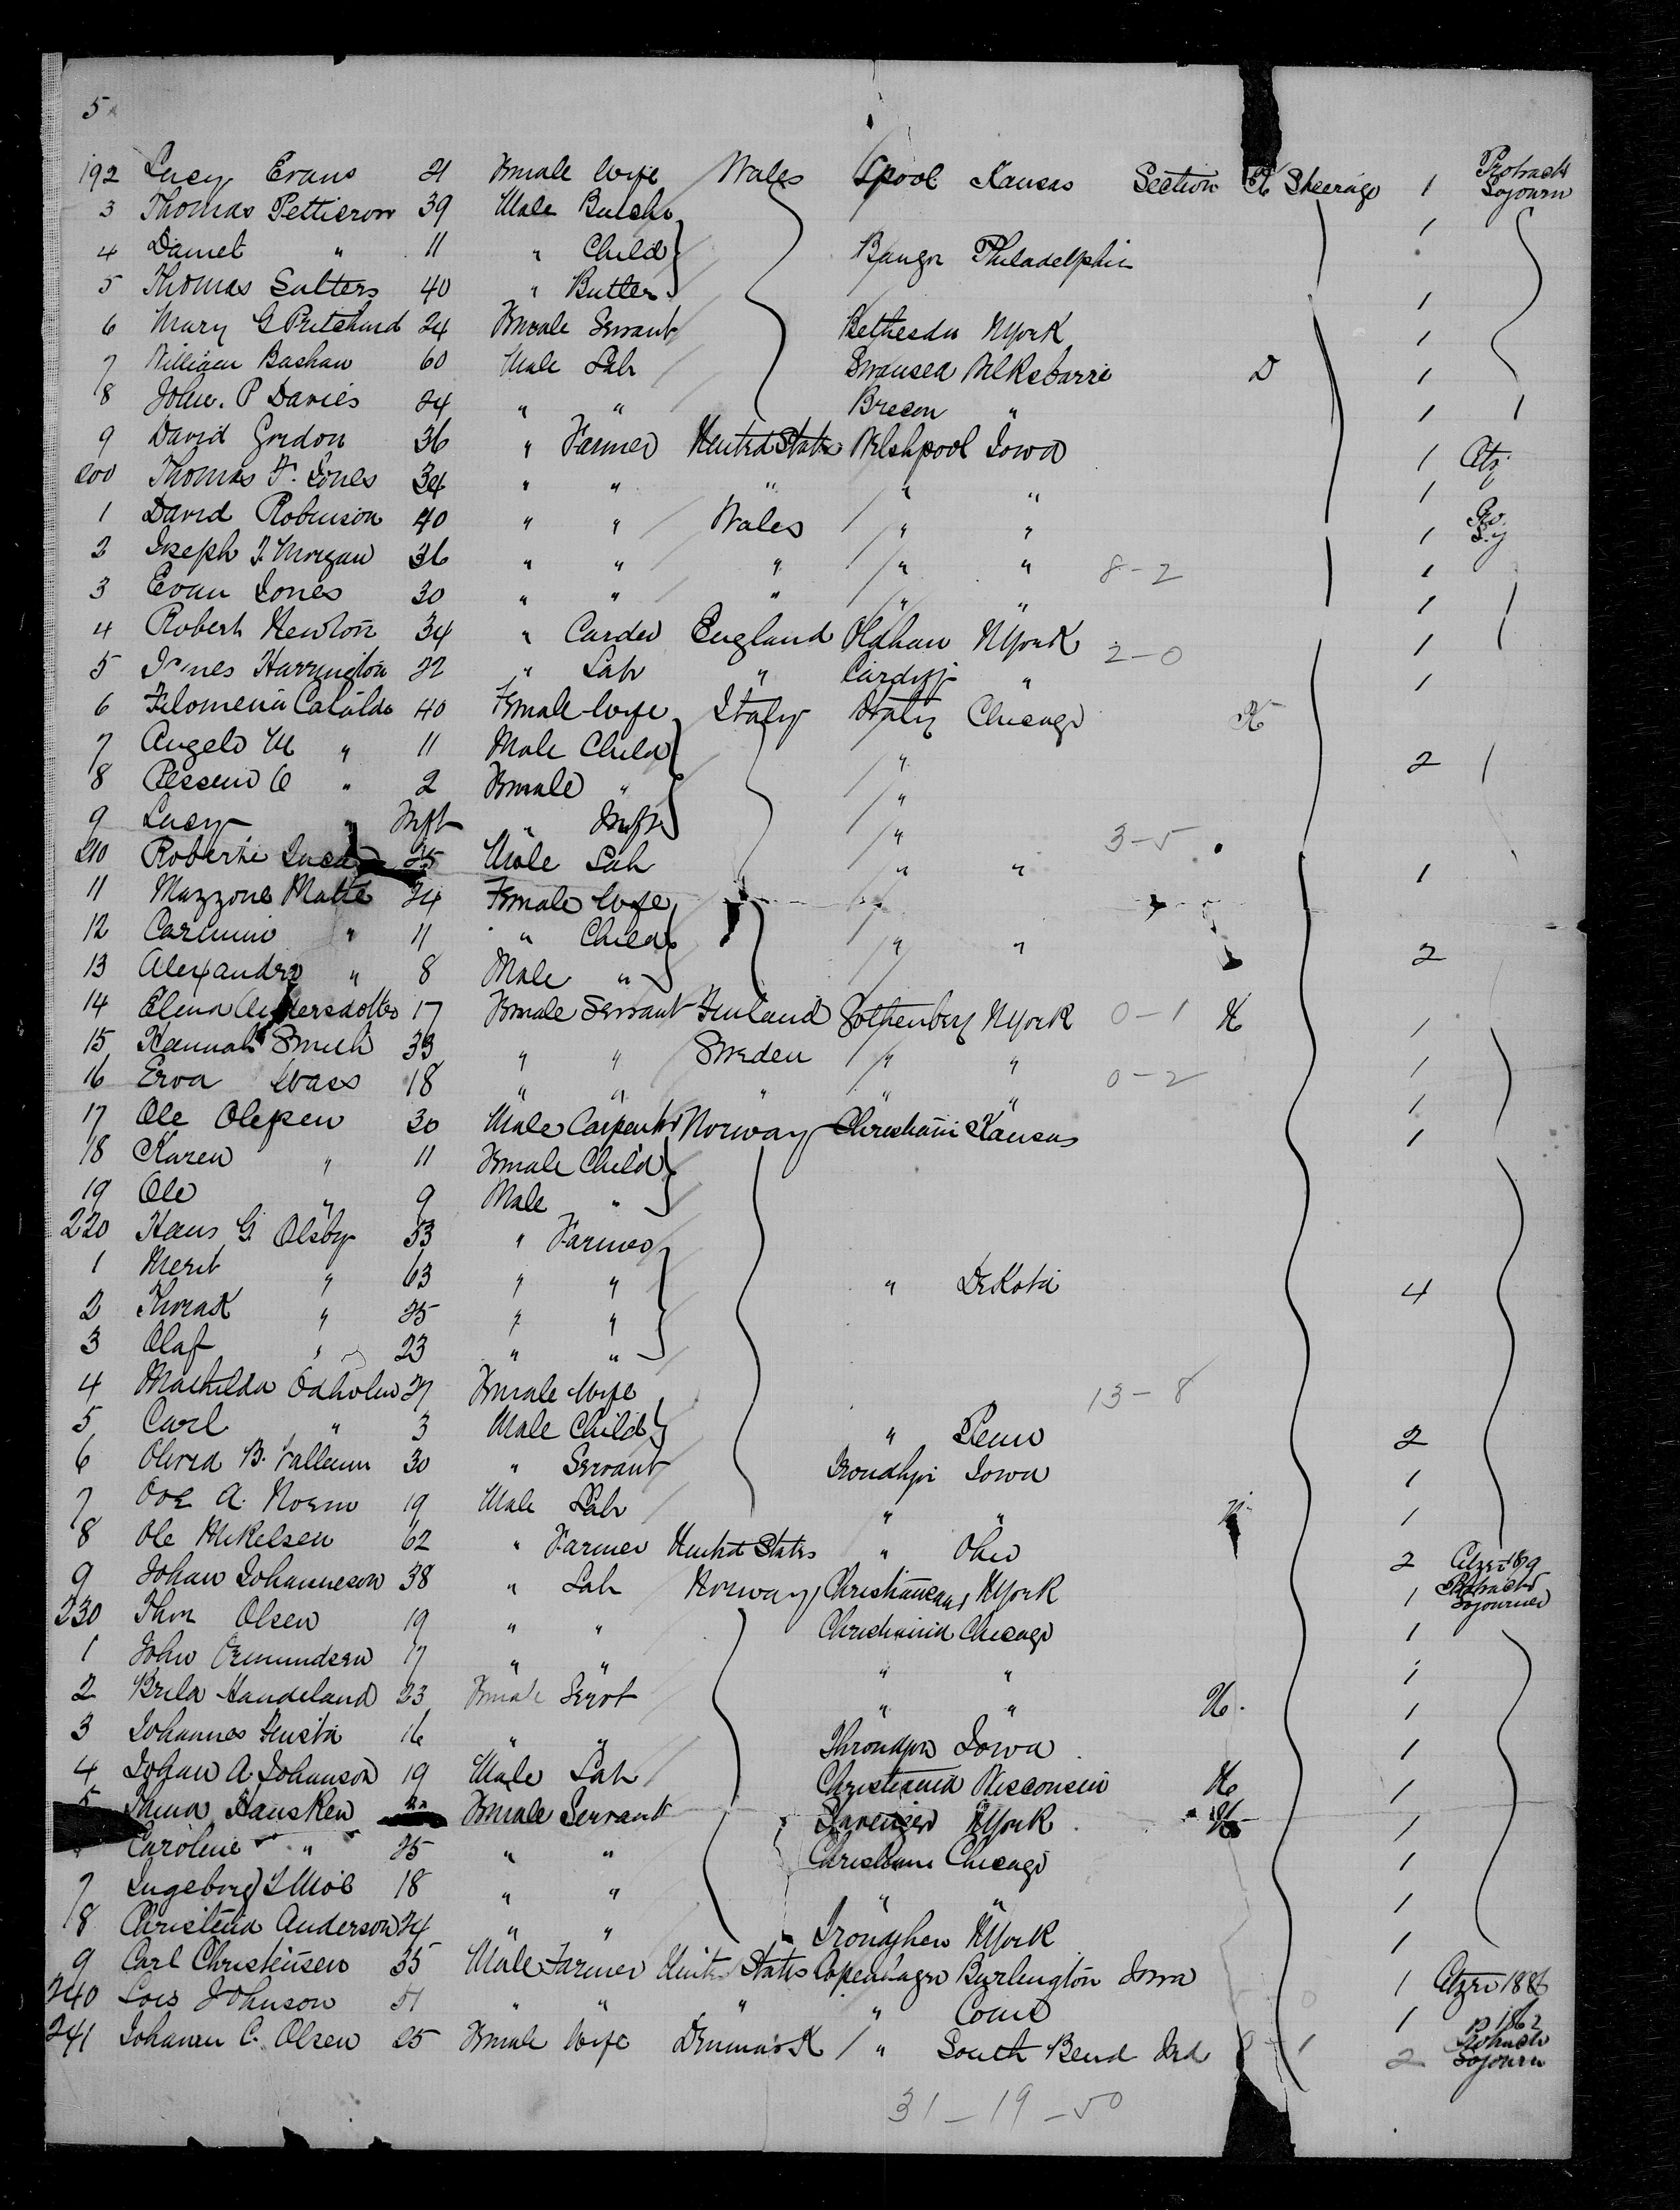 5
192 Lucy Evans 21 Female Wife Wales Lpool Kansas Section K Steerage 1 Protracted Sojourn
3 Thomas Petticrow 39 Male Butcher 1
4 Daniel " 11 " Child Bangor Philadelphia
5 Thomas Salters 40 " Butler 1
6 Mary G Pritchard 24 Female Servant Bethesda NYork 1
7 William Bashaw 60 Male Lab Swansea Wilksbarre D 1
8 John. P Davies 24 " " Brecon " 1
9 David Gordon 36 " Farmer United States Welshpool Iowa 1 Ctz
200 Thomas F. Jones 34 " " " " " 1
1 David Robinson 40 " " Wales " " 1
2 Joseph J. Morgan 36 " " " " " 8-2 1
3 Evan Jones 30 " " " " " 1
4 Robert Newton 34 " Carder England Oldham NYork 2-0 1
5 James Harrington 22 " Lab " Cardiff " 1
6 Filomena Cataldo 40 Female Wife Italy Italy Chicago K
7 Angelo M " 11 Male Child " 2
8 " 2 Female " "
9 Lucy " Inft " Inft " 3-5
210 Roberti Luca 25 Male Lab " " 1
11 Mazzone Matte 24 Female Wife
12 Carmino " 11 " Child " " 2
13 Alexandro " 8 Male "
14 Elena Andersdotter 17 Female Servant Finland Gothenberg NYork 0-1 H 1
15 Hannah Smith 33 " " Sweden " " 1
16 Erva Wass 18 " " " " " 0-2 1
17 Ole Olepsen 30 Male Carpenter Norway Christiania Kansas 1
18 Karen " 11 Female Child
19 Ole " 9 Male "
220 Hans G. Olsby 53 " Farmer
1 Merit " 63 " " " DeKota 4
2 " 25 " "
3 Olaf " 23 " "
4 Mathilda Odholm 27 Female Wife 13-8
5 Carl " 3 Male Child " Penn 2
6 B. 30 " Servant Trondhjm Iowa 1
7 A. Norm 19 Male Lab " " 1
8 Ole Mikelsen 62 " Farmer United States " Ohio 2
9 Johan Johanneson 38 " Lab Norway Christiansand NYork 1 Protracted Sojourner
230 Thor Olsen 19 " " Christiania Chicago 1
1 John Osmundsen 17 " " " " 1
2 Brita Handeland 23 Female Servt " " H. 1
3 Johannes 16 " " Throndjm Iowa 1
4 Johan A. Johanson 19 Male Lab Christiania Wisconsin H 1
5 Thina Hausken Female Servant Stavenger NYork H 1
Caroline " 25 " " Christiania Chicago 1
7 Ingeborg L Moe 18 " " " " 1
8 Christena Anderson 24 " " Trondjhen NYork 1
9 Carl Christensen 35 Male Farmer United States Copenhagen Burlington Iowa 1 Ctzn 1886
240 Lois Johnson 51 " " " " Conn 1 1862
241 Johanna C. Olsen 25 Female Wife Denmark " South Bend Ind 1 2 Protracted Sojourn
31-19-50